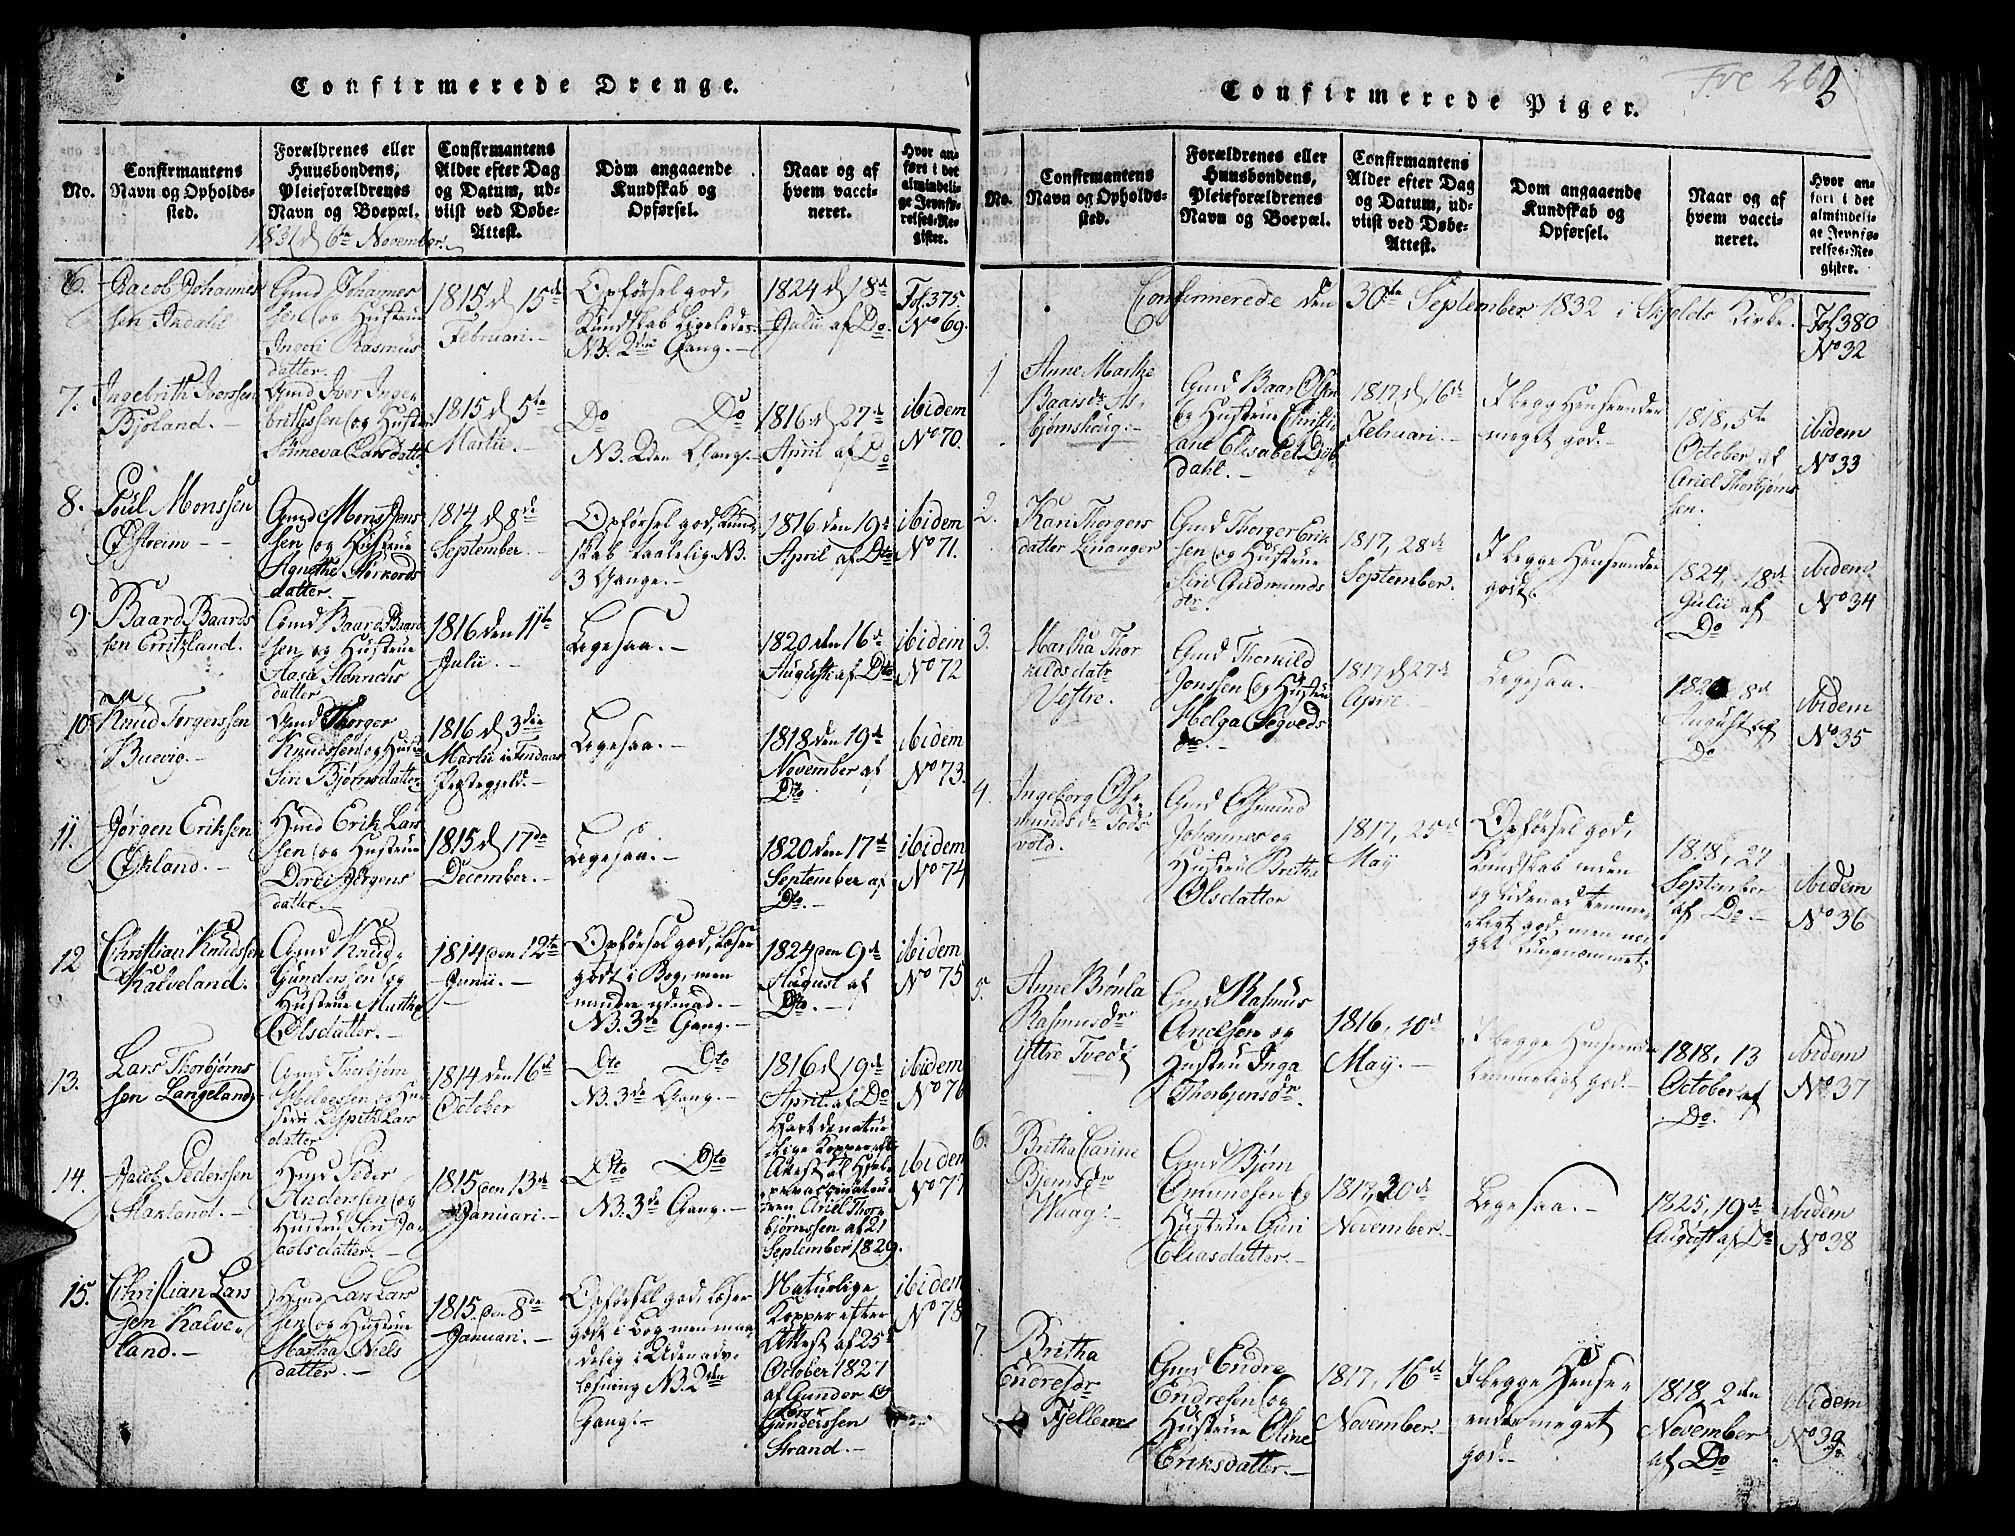 Confirmerede Drenge.
No.
Confirmantens
Navn og Opholds-
sted.
Forældrenes eller
Huusbondens,
Pleieforældrenes
Navn og Boepæl.
Confirmantens
Alder efter Dag
og Datum, ud-
viist ved Døbe-
Attest.
Dom angaaende
Kundskab og
Opførsel.
Naar og af
hvem vacci-
neret.
Hvor an-
ført i det
almindeli-
ge Jevnfø-
relses-Re-
gister.
1831 d 6te November.
6.
Jacob Johannes
sen Indahl
Gmd Johannes
sen og Hustrue
Ingeri Rasmus
datter.
1815 d 15de
Februari.-
Opførsel god,
Kundskab Ligeledes.
NB. 2den Gang.-
1824 d 18d
Julii af Do.
Fol. 375.
No 69.
7.
Ingebrith Iverssen
Bjoland.-
Gmd Iver Inge
brithssen og Hustr
Sønneva Larsdatt
1815 d 5te
Martii.-
Do Do
NB. 2den Gang.-
1816 d 27d
April af Do
ibidem
No 70.
8.
Poul Monssen
Østreim -
Gmd Mons Jens
sen og Hustrue
Agnethe Størkerds
datter.
1814 d 8de
September.
Opførsel god, Kund
skab taalelig NB.
3 Gange.-
1816 den 19d
April af Dto
ibidem
No 71.
9.
Baard Baards
sen Erritzland.
Gmd Baard Baard
sen og Hustrue
Aasa Henrichs
datter
1816 den 11te
Julii.-
Ligesaa.-
1820 den 16d
August af Dto
ibidem
No 72
10.
Knud Torgerssen
Buevig.-
Gmd Thorger
Knudssen og Hustr
Siri Bjørnsdatter
1816 d 3die
Martii i Findaas
Præstegjeld.-
Ligesaa.-
1818 den 19d
November af
Dto.
ibidem
No 73.
11.
Jørgen Eriksen
Økland.-
Hmd Erik Lars
sen og Hustrue
Dordi Jørgens
datter.-
1815 d 17de
December.-
Ligesaa.-
1820 den 17d
September af
Dto.-
ibidem
No 74
12
Christian Knudssen
Kalveland.
Gmd Knud
Gunderssen og
Hustrue Martha
Olsdatter.-
1814 den 12te
Junii.-
Opførsel god, læser
godt i Bog, men
mindre udenad.-
NB. 3de Gang.-
1824 den 9d
August af
Dto.-
ibidem
No 75
13.
Lars Thorbjørns
sen Langeland
Gmd Thorbjørn
og Hu-
strue Lisbeth Lars
datter
1814 den 16d
October
Dto Dto
NB. 3de Gang.-
1816 d 19d
April af Do
ibidem
No 76
14.
Jacob Pederssen
Hmd Peder
Anderssen og
Hustrue Siri Ja-
cobsdatter.-
1815 den 13d
Januari.-
Dto Dto
NB. 3de Gang.-
Havt de natur
lige Kopper efter
Attest af Hjelpe
vaccinateu
ren Ariel Thor
bjørnssen af 21
September 1829.
ibidem
No 77
15.
Christian Lars
sen Kalve-
land.-
Hmd Lars Lars
sen og Hustrue
Martha Niels
datter.-
1815 den 8de
Januari.-
Opførsel god, læser
godt i Bog men maa-
delig i Udenadv
læsning NB. 2den
Gang.-
Naturlige
Kopper efter
Attest af 25d
October 1827
af Gunder
Gunderssen
Strand.-
ibidem
No 78
Confirmerede Piger.
No.
Confirmantens
Navn og Opholds-
sted.
Forældrenes eller
Huusbondens,
Pleieforældrenes
Navn og Boepæl.
Confirmantens
Alder efter Dag
og Datum, ud-
viist ved Døbe-
Attest.
Dom angaaende
Kundskab og
Opførsel.
Naar og af
hvem vacci-
neret.
Hvor an-
ført i det
almindeli-
ge Jevnfø-
relses-Re-
gister.
Confirmerede den 30te September 1832 i Skjolds Kirke.
Fol 380
No 32
1
Anne Marthe
Baarsdr Is-
bjørnshøig.-
Gmd Baar Olsen
og Hustrue Christi-
ane Elisabet Dyb-
dahl.-
1817 d 16d
Februari.-
I begge Henseender
meget god.-
1818, 5te
October af
Ariel Thorbjørns
sen.
ibidem
No 33
2.
Kari Thorgers
datter Linanger
Gmd Thorger Erik
sen og Hustrue
Siri Gudmunds
dr.
1817, 28d
September.
I begge Henseender
god.
1824, 18d
Julii af
Do
ibidem
No 34
3.
Martha Thor
kildsdatr
Vestre.
Gmd Thorkild
Jonssen og Hustrue
Helga Segveds
dr.-
1817 d 27d
April.
Ligesaa.-
8d
August af
Do
ibidem
No 35
4.
Ingeborg Os-
munds dr Tods
vold.
Gmd Osmund
Johannes og
Hustrue Brithe
Olsdatter
1817, 25d
May
Opførsel god,
Kundskab inden
og Udenad temme-
ligt god, men no-
get tungnæmmet.
1818, 27
September
af Do.-
ibidem
No 36
5.
Anne Brønla
Rasmusdr
ystre Tvedt
Gmd Rasmus
Arielsen og
Hustrue Inga
Thorbjensdr.
1816, 10d
May.-
I begge Henseender
temmeligt god.-
1818, 13
October af
Do.
ibidem
No 37
6.
Britha Carine
Bjønsdr
Haag.-
Gmd Bjørn
Omundsen og
Hustrue Guri
Eliasdatter.-
1817, 20d
November.
Ligesaa.-
1825, 19d
August af Do
ibidem
No 38
7.
Britha
Endresdr
Fjellem
Gmd Endre
Endresen og
Hustrue Oline
Eriksdatter.-
1817, 16d
November.-
I begge Hensee-
ender meget
god.-
1818, 2den
November
af Do
ibidem
No 39